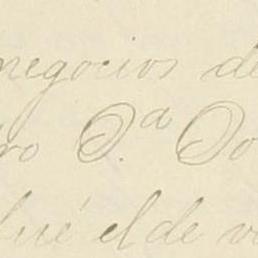 negocios de
ro D.ª Do
fué el de v